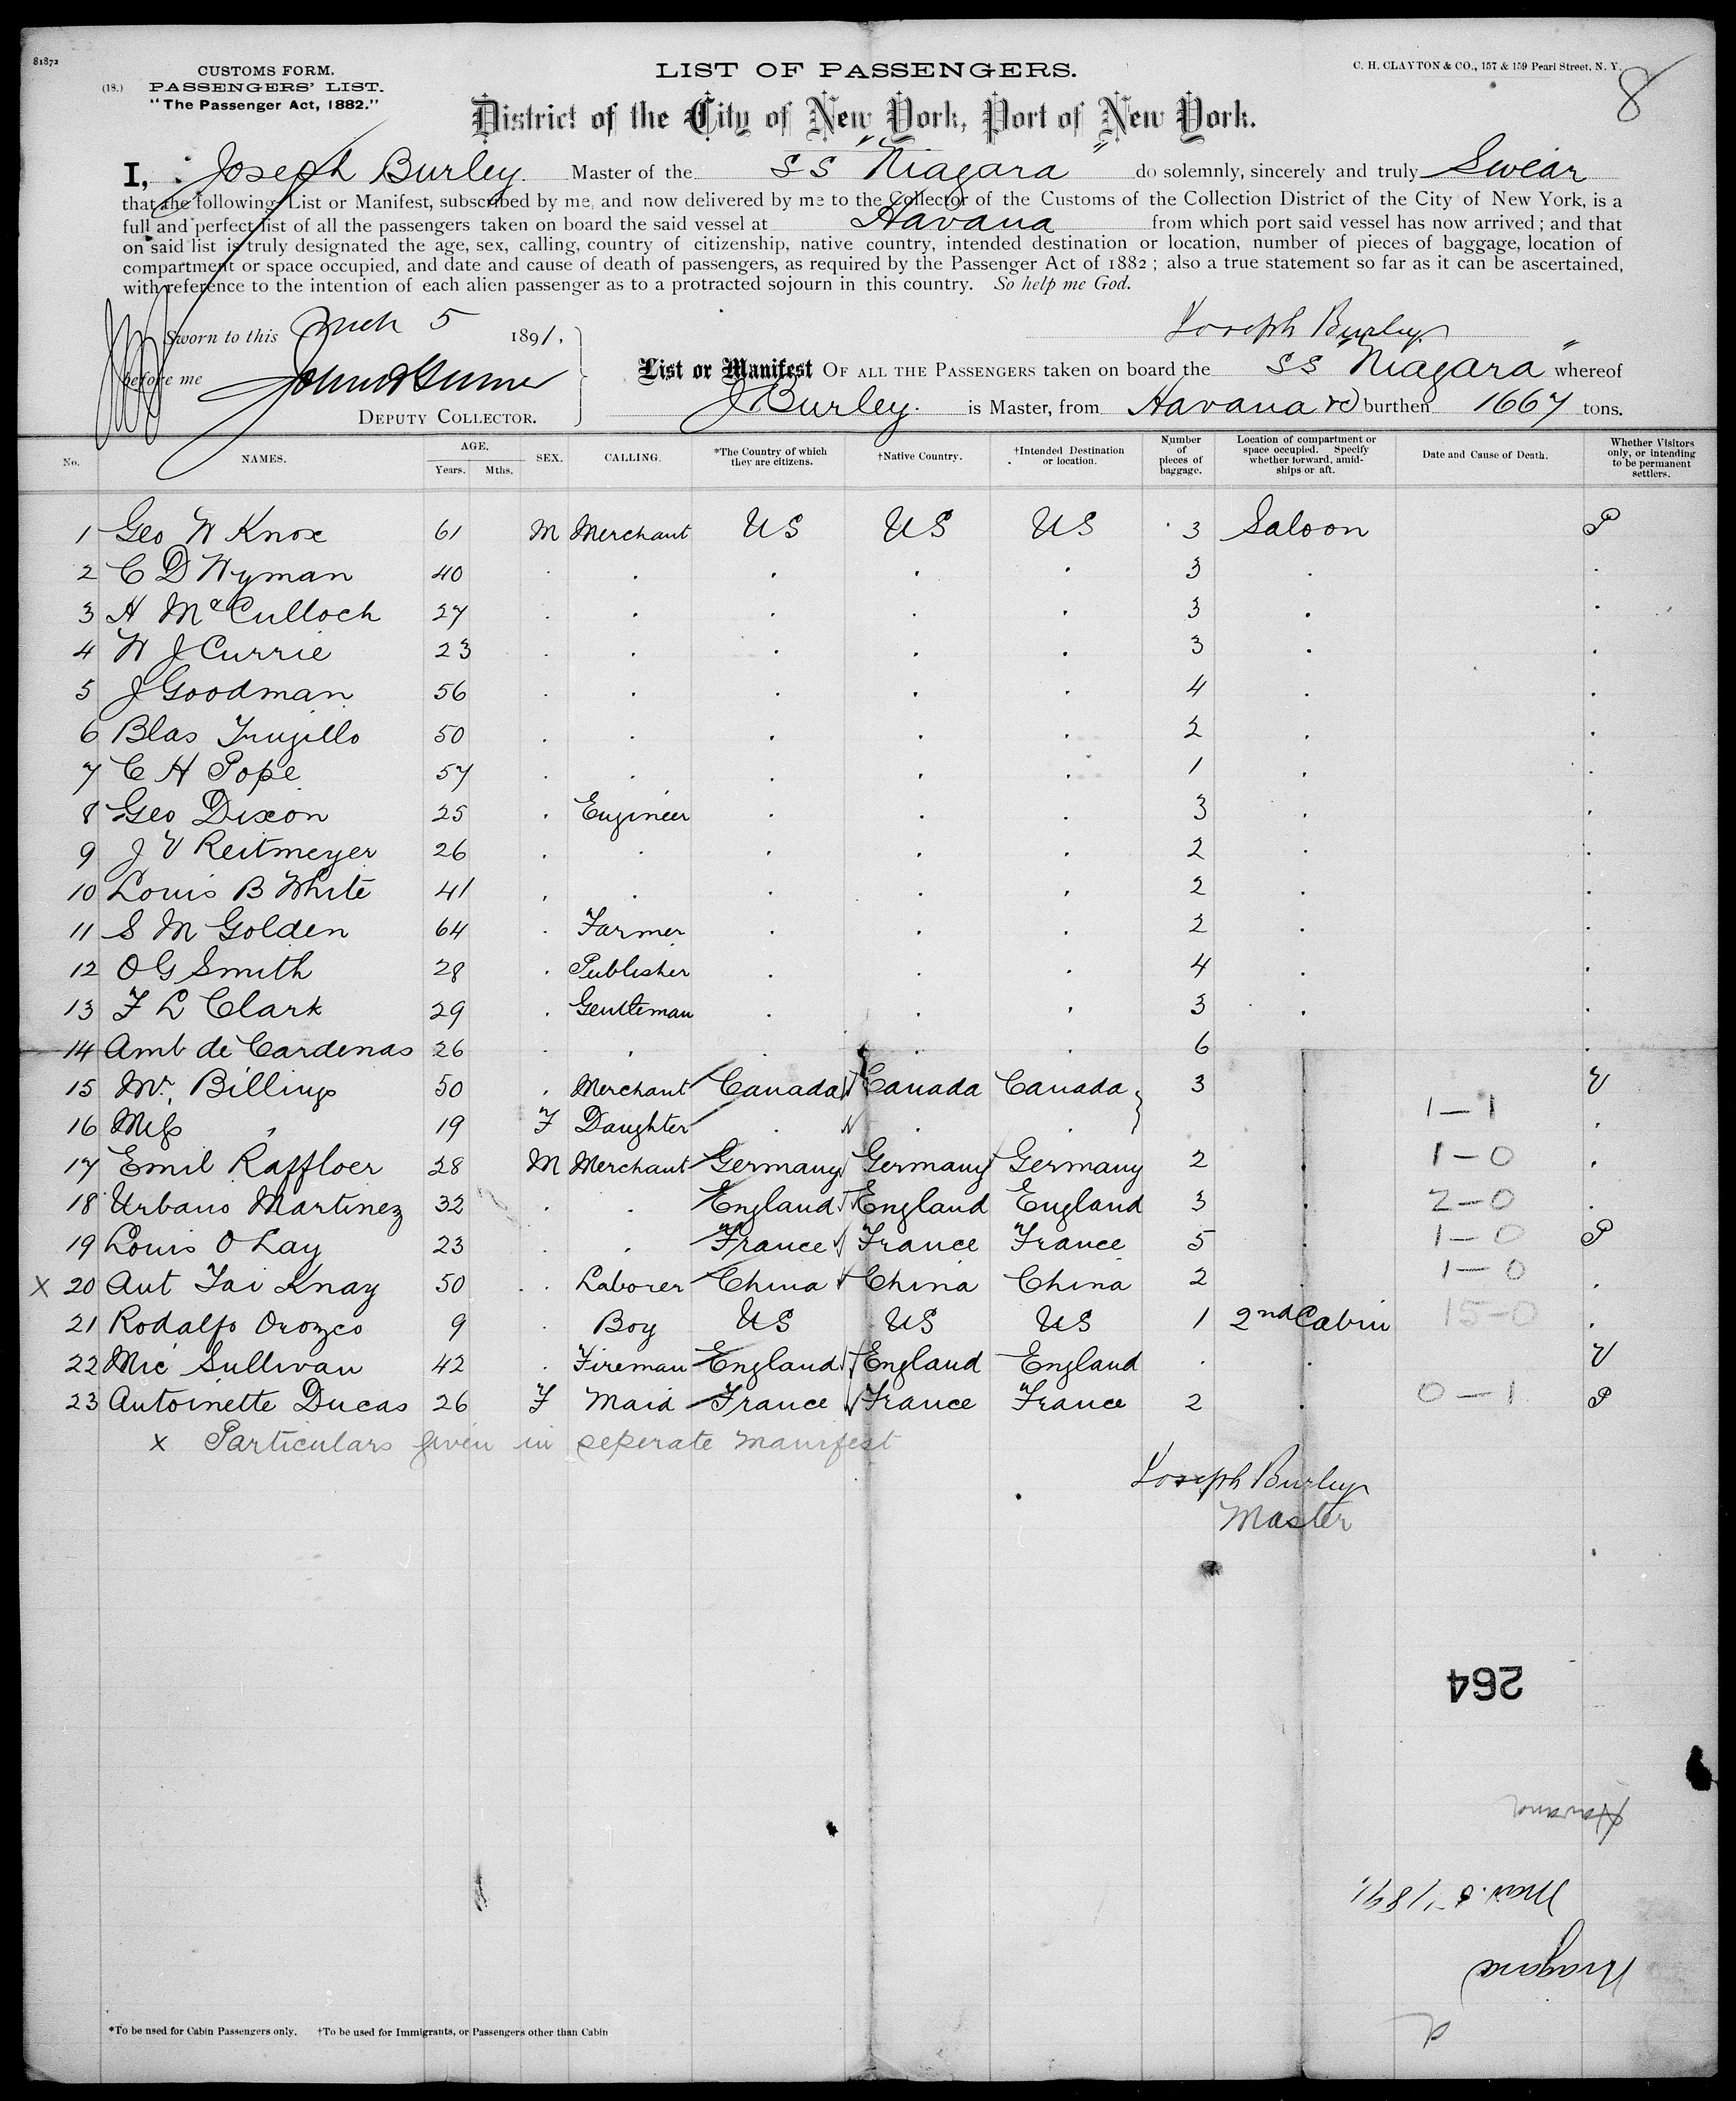 81872
CUSTOMS FORM.
(18.) PASSENGERS' LIST.
"The Passenger Act, 1882."
LIST OF PASSENGERS.
C. H. CLAYTON & CO., 157 & 159 Pearl Street, N. Y.
8
District of the City of New York, Port of New York.
I, Joseph Burley Master of the SS "Niagara" do solemnly, sincerely and truly Swear
that the following List or Manifest, subscribed by me, and now delivered by me to the Collector of the Customs of the Collection District of the City of New York, is a
full and perfect list of all the passengers taken on board the said vessel at Havana from which port said vessel has now arrived; and that
on said list is truly designated the age, sex, calling, country of citizenship, native country, intended destination or location, number of pieces of baggage, location of
compartment or space occupied, and date and cause of death of passengers, as required by the Passenger Act of 1882; also a true statement so far as it can be ascertained,
with reference to the intention of each alien passenger as to a protracted sojourn in this country. So help me God.
Sworn to this Mch 5 1891.
Joseph Burley
before me
DEPUTY COLLECTOR.
List or Manifest OF ALL THE PASSENGERS taken on board the SS "Niagara" whereof
J Burley. is Master, from Havana burthen 1667 tons.
No. NAMES. AGE. Years. Mths. SEX. CALLING. *The Country of which they are citizens. †Native Country. †Intended Destination or location. Number of pieces of baggage. Location of compartment or space occupied. Specify whether forward, amidships or aft. Date and Cause of Death. Whether Visitors only, or intending to be permanent settlers.
1 Geo W Knox 61 M Merchant US US US 3 Saloon P
2 C D Wyman 40 . . . . . 3 . .
3 H McCulloch 27 . . . . . 3 . .
4 W J Currie 23 . . . . . 3 . .
5 J Goodman 56 . . . . . 4 . .
6 Blas Trujillo 50 . . . . . 2 . .
7 C H Pope 57 . . . . . 1 . .
8 Geo Dixon 25 . Engineer . . . 3 . .
9 J V Reitmeyer 26 . . . . . 2 . .
10 Louis B White 41 . . . . . 2 . .
11 S M Golden 64 . Farmer . . . 2 . .
12 O G Smith 28 . Publisher . . . 4 . .
13 F L Clark 29 . Gentleman . . . 3 . .
14 Amb de Cardenas 26 . . . . . 6 .
15 Mr. Billings 50 . Merchant Canada Canada Canada 3 . V
16 Miss " 19 F Daughter . . . 1-1 .
17 Emil Raffloer 28 M Merchant Germany Germany Germany 2 . 1-0 .
18 Urbano Martinez 32 . . England England England 3 . 2-0 .
19 Louis O Lay 23 . . France France France 5 . 1-0 P
X 20 Aut Tai Knay 50 . Laborer China China China 2 . 1-0 .
21 Rodalfo Orozco 9 . Boy US US US 1 2nd Cabin 15-0 .
22 Mic Sullivan 42 . Fireman England England England . . V
23 Antoinette Ducas 26 F Maid France France France 2 . 0-1 P
x Particulars given in seperate manifest
Joseph Burley
Master
264
Havana
1891
Niagara
*To be used for Cabin Passengers only. †To be used for Immigrants, or Passengers other than Cabin